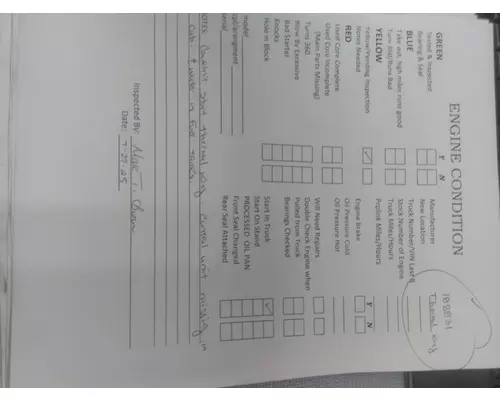 ENGINE CONDITION
GREEN
Tested & Inspected
Bearing & Seal
BLUE
Take out, high miles runs good
Turn 360/Runs Bad
YELLOW
Yellow/Pending Inspection
Notes Needed
RED
Used Core Complete
Used Core Incomplete
(Main Parts Missing)
Turns 360
Blow By Excessive
Bad Starter
Knocks
Hole in Block
model
cpl/arrangment
serial
Y N
Manufacturer Thermo king
New Location
Truck Number/VIN Last 8
Stock Number of Engine
Truck Miles/Hours
Paylink Miles/Hours
Y N
Engine Brake
Oil Pressure Cold
Oil Pressure Hot
Will Need Repairs
Double Check Engine when
Pulled from Truck
Bearings Checked
Start In Truck
Start On Stand
PROCESSED OIL PAN
Front Seal Changed
Rear Seal Attached
NOTES: Couldn't start thermal king, control unit missing in
Inspected By:
Date: 7-27-25